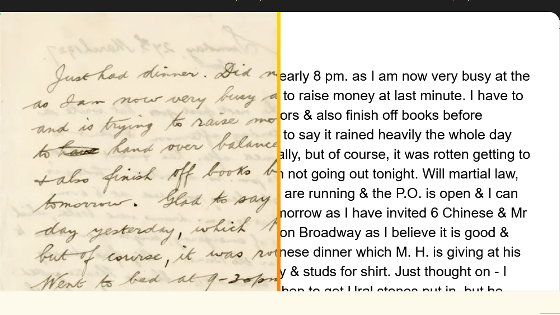 Just had dinner. Did n
as I am now very busy a
and is trying to raise mo
to have hand over balance
& also finish off books b
tomorrow. Glad to say
day yesterday, which
but of course, it was ro
Went to bed at
early 8 pm. as I am now very busy at the
to raise money at last minute. I have to
ors & also finish off books before
to say it rained heavily the whole day
ally, but of course, it was rotten getting to
not going out tonight. Will martial law,
are running & the P.O. is open & I can
morrow as I have invited 6 Chinese & Mr
on Broadway as I believe it is good &
nese dinner which M. H. is giving at his
y & studs for shirt. Just thought on - I
to get Ural stones put in, but he